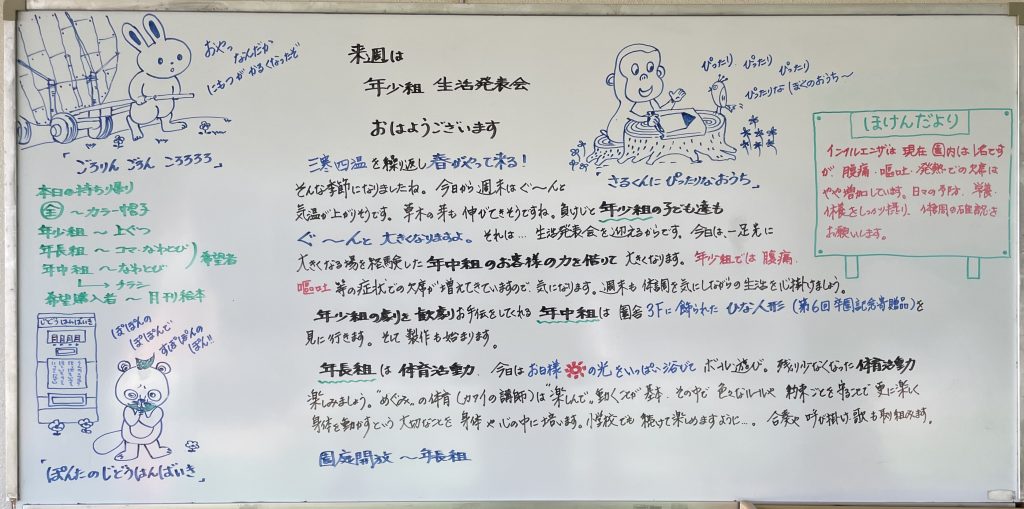 おやっ
なんだか
にもつが かるくなったぞ
「ごろりん ごろん ころろろろ」
来週は
年少組 生活発表会
おはようございます
ぴったり
ぴったり
ぴったり
ぴったりな ぼくのおうち〜
「さるくんにぴったりなおうち」
ほけんだより
インフルエンザは 現在 園内は1名です
が、腹痛・嘔吐・発熱での欠席は
やや増加しています。日々の予防、栄養、
休養をしっかり摂り、体調の確認を
お願いします。
本日の持ち帰り
全 〜カラー帽子
年少組 〜上ぐつ
年長組 〜コマ・なわとび
年中組 〜なわとび
希望者
チラシ
希望購入者 〜月刊絵本
じどうはんばいき
ぽぽんの
ぽぽんで
すぽぽんの
ぽん!!
「ぽんたのじどうはんばいき」
三寒四温を繰り返し 春がやって来る!
そんな季節になりましたね。今日から週末はぐ〜んと
気温が上がりそうです。草木の芽も伸びてきそうですね。負けじと年少組の子ども達も
ぐ〜んと大きくなりますよ。それは… 生活発表会を迎えるからです。今日は、一足先に
大きくなる場を経験した年中組のお客様の力を借りて大きくなります。年少組では腹痛・
嘔吐等の症状での欠席が増えてきていますので、気になります。週末も体調を気にしながらの生活を心掛けましょう。
年少組の劇を観劇お手伝をしてくれる年中組は 園舎3Fに飾られたひな人形(第6回卒園記念寄贈品)を
見に行きます。そして製作も始まります。
年長組は体育活動。今日はお日様の光をいっぱい浴びてボール遊び。残り少なくなった体育活動
楽しみましょう。"めぐみ"の体育(カワイの講師)は"楽しんで"動くことが基本。その中で色々なルールや約束ごとを守ることで更に楽しく
身体を動かすという大切なことを身体や心の中に培います。小学校でも続けて楽しめますように…。合奏や呼び掛け・歌も取組みます。
園庭開放 〜年長組